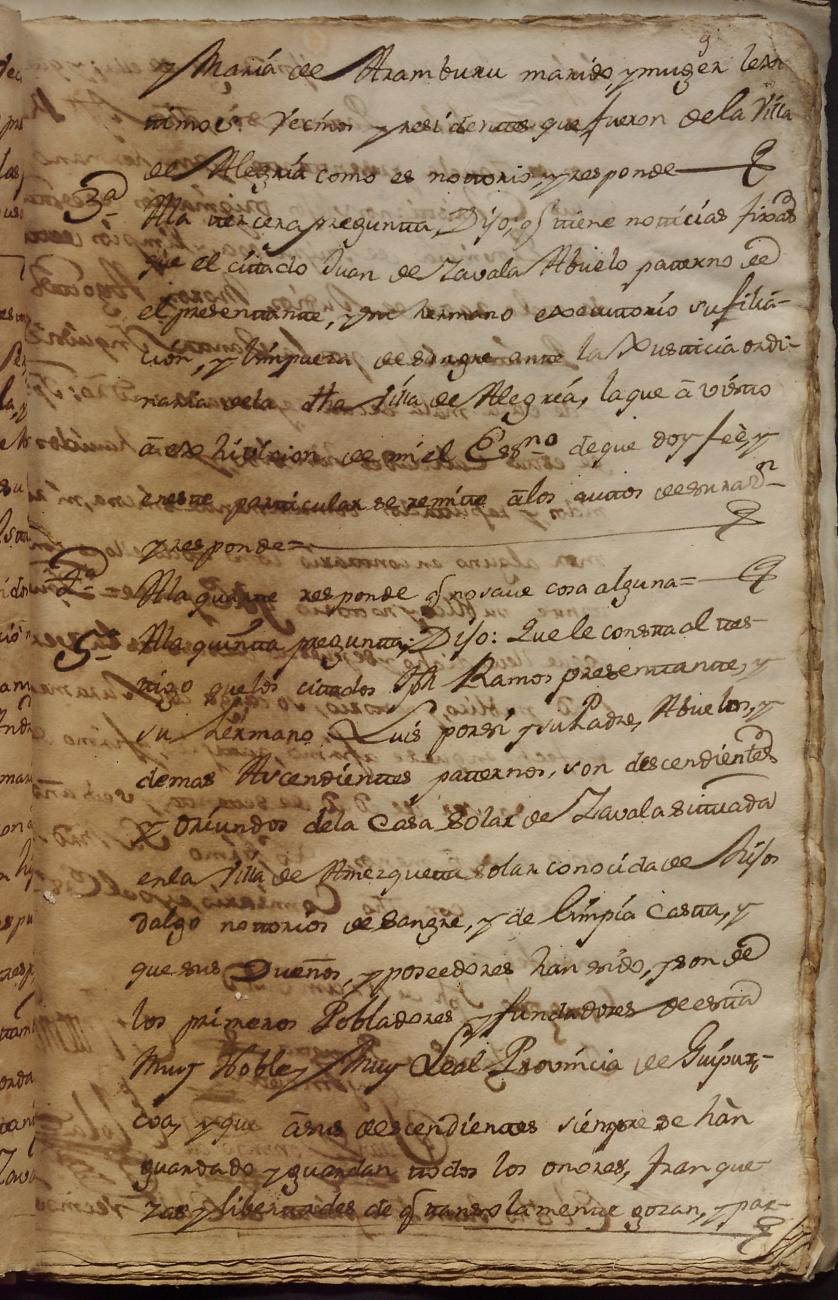 9
y María de Aramburu marido, y muger lexi
timos Vecinos y residentes que fueron de la Villa
de Alegría como es nottorio, y responde
3ª Ala tercera pregunta, Dijo, q̃ ttiene notticias fixas
que el cittado Juan de Zavala Abuelo patterno de
el presenttante, y mr hermano executtorio su filia-
ción, y limpueza de sangre antte la Xustticia ordi-
naria de la dha Villa de Alegría, la que â visto
â exhivicion de mi el Essno de que doy feè, y
en estte particular se remitte âlos auttos de su razn
y responde=
4ª Ala quartta responde q̃ no save cosa alguna=
5ª Ala quintta preguntta, Dijo: Que le constta al ttes-
tigo que los cittados Jph Ramos presenttante, y
su hermano Luis por sí y su Padre, Abuelos, y
demas Ascendienttes patternos, son descendienttes
y oriundos dela Casa Solar de Zavala situada
en la Villa de Amezquetta solar conocida de Hijos
dalgo nottorios de sangre, y de limpia Castta, y
que sus Dueños, y poseedores han sido, y son de
los primeros Pobladores y fundadores de estta
Muy Noble y Muy Leal Província de Guipuz-
coa, y que âsus descendienttes siempre se hàn
guardado y guardan ttodos los onores, franque
zas y liberttades de q̃ ttansolamentte gozan, y par-